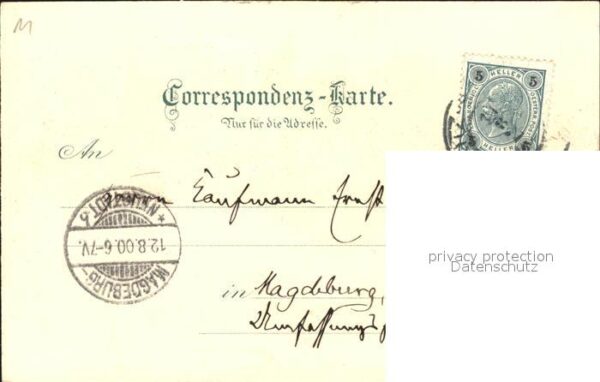 M
5 HELLER 5
Correspondenz-Karte.
Nur für die Adresse.
An
Herrn Kaufmann Ernst
12.8.00.6-7V.
MAGDEBURG-
privacy protection
Datenschutz
in Magdeburg,